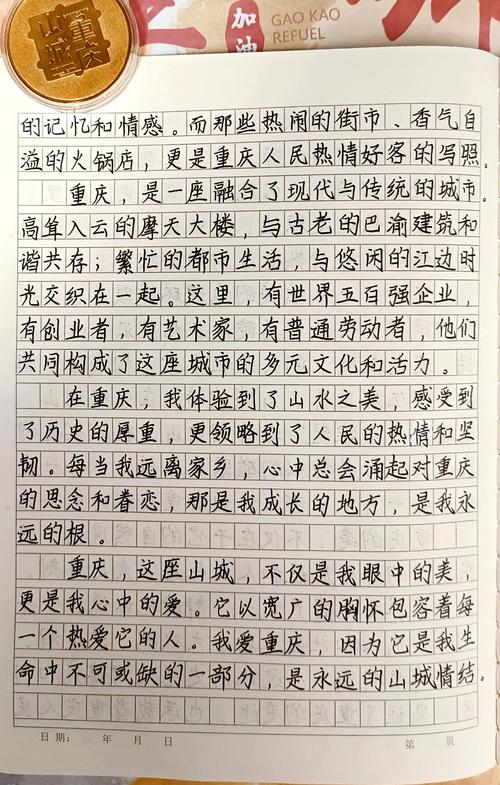 山城
重庆
加油
GAO KAO
REFUEL
的记忆和情感。而那些热闹的街市、香气自
溢的火锅店，更是重庆人民热情好客的写照。
重庆，是一座融合了现代与传统的城市。
高耸入云的摩天大楼，与古老的巴渝建筑和
谐共存；繁忙的都市生活，与悠闲的江边时
光交织在一起。这里，有世界五百强企业，
有创业者，有艺术家，有普通劳动者，他们
共同构成了这座城市的多元文化和活力。
在重庆，我体验到了山水之美，感受到
了历史的厚重，更领略到了人民的热情和坚
韧。每当我远离家乡，心中总会涌起对重庆
的思念和眷恋，那是我成长的地方，是我永
远的根。
重庆，这座山城，不仅是我眼中的美，
更是我心中的爱。它以宽广的胸怀包容着每
一个热爱它的人。我爱重庆，因为它是我生
命中不可或缺的一部分，是永远的山城情结。
日期： 年 月 日
第 页